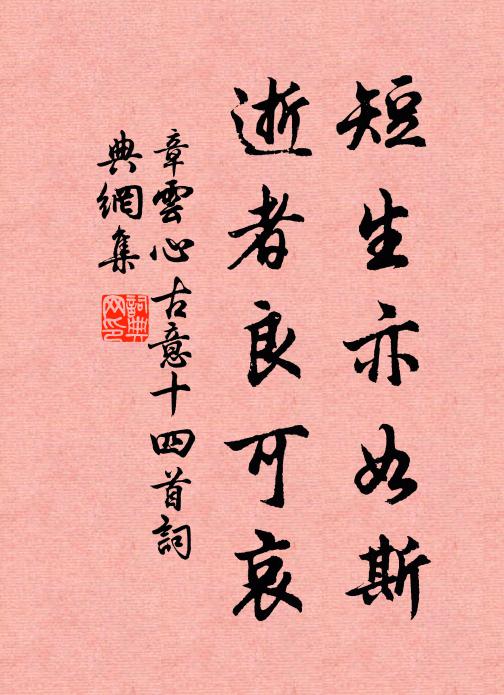 短生亦如斯
逝者良可哀
章雲心古意十四首詞
典網集
詞典
网印